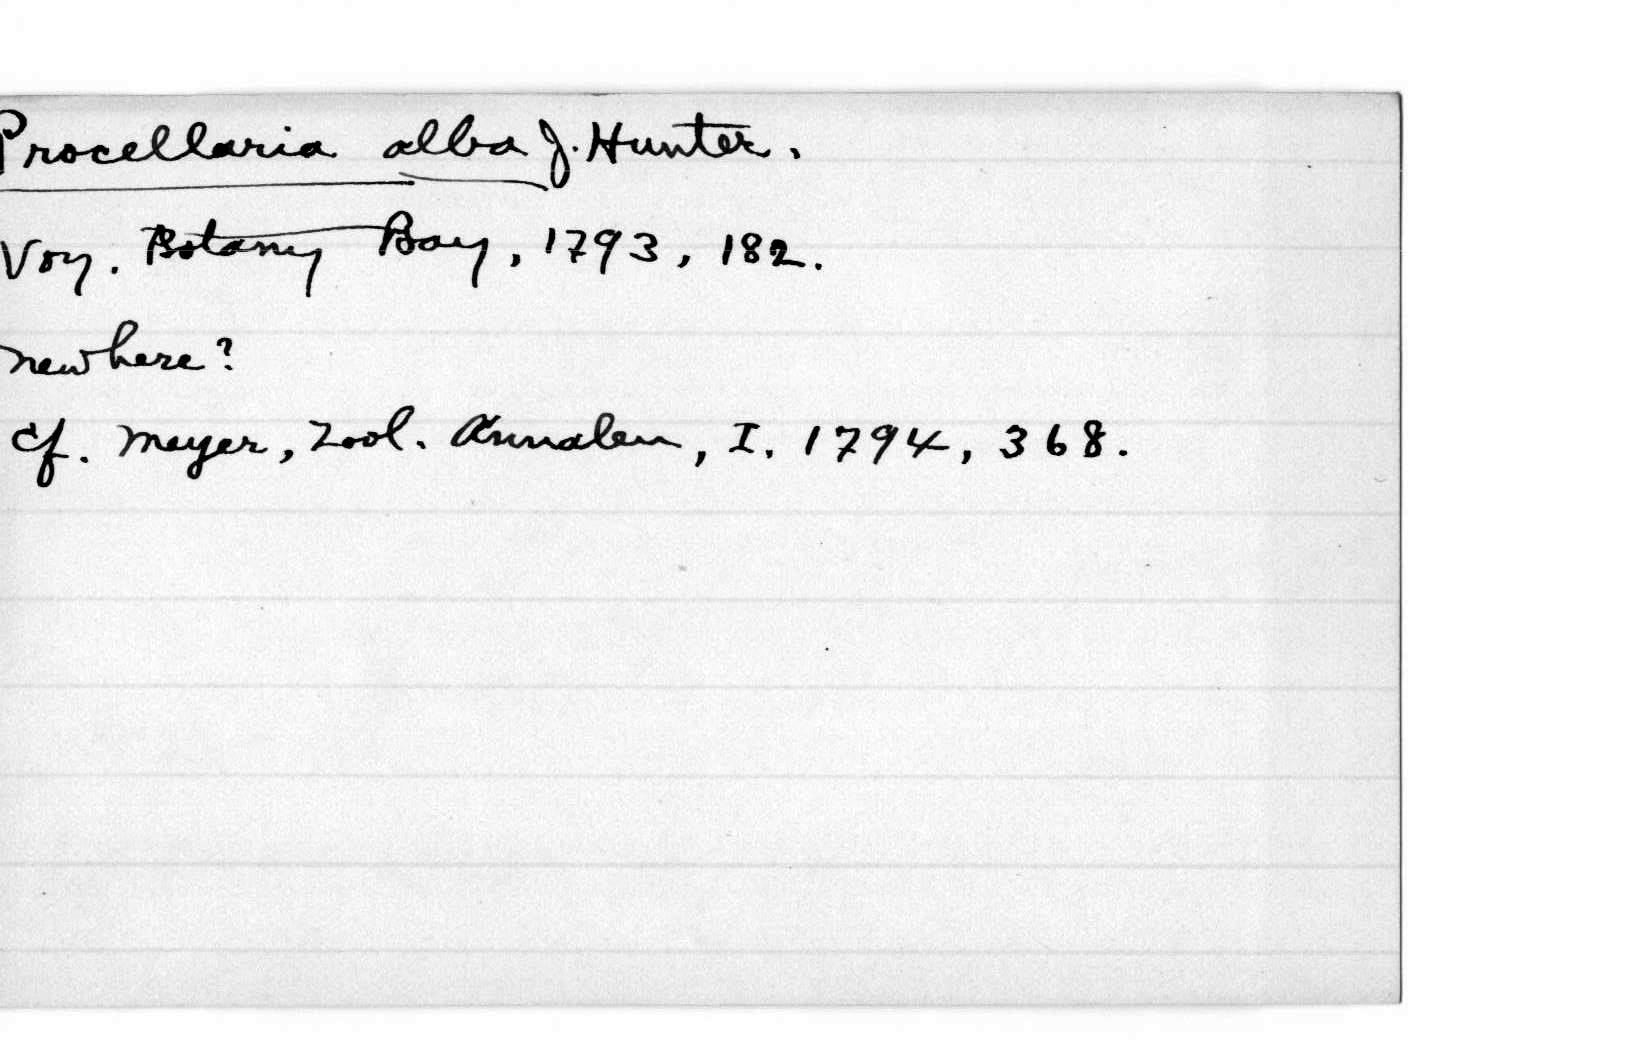 Procellaria alba J. Hunter.
Voy. Botany Bay, 1793, 182.
new here?
cf. Meyer, Zool. Annalen, I. 1794, 368.